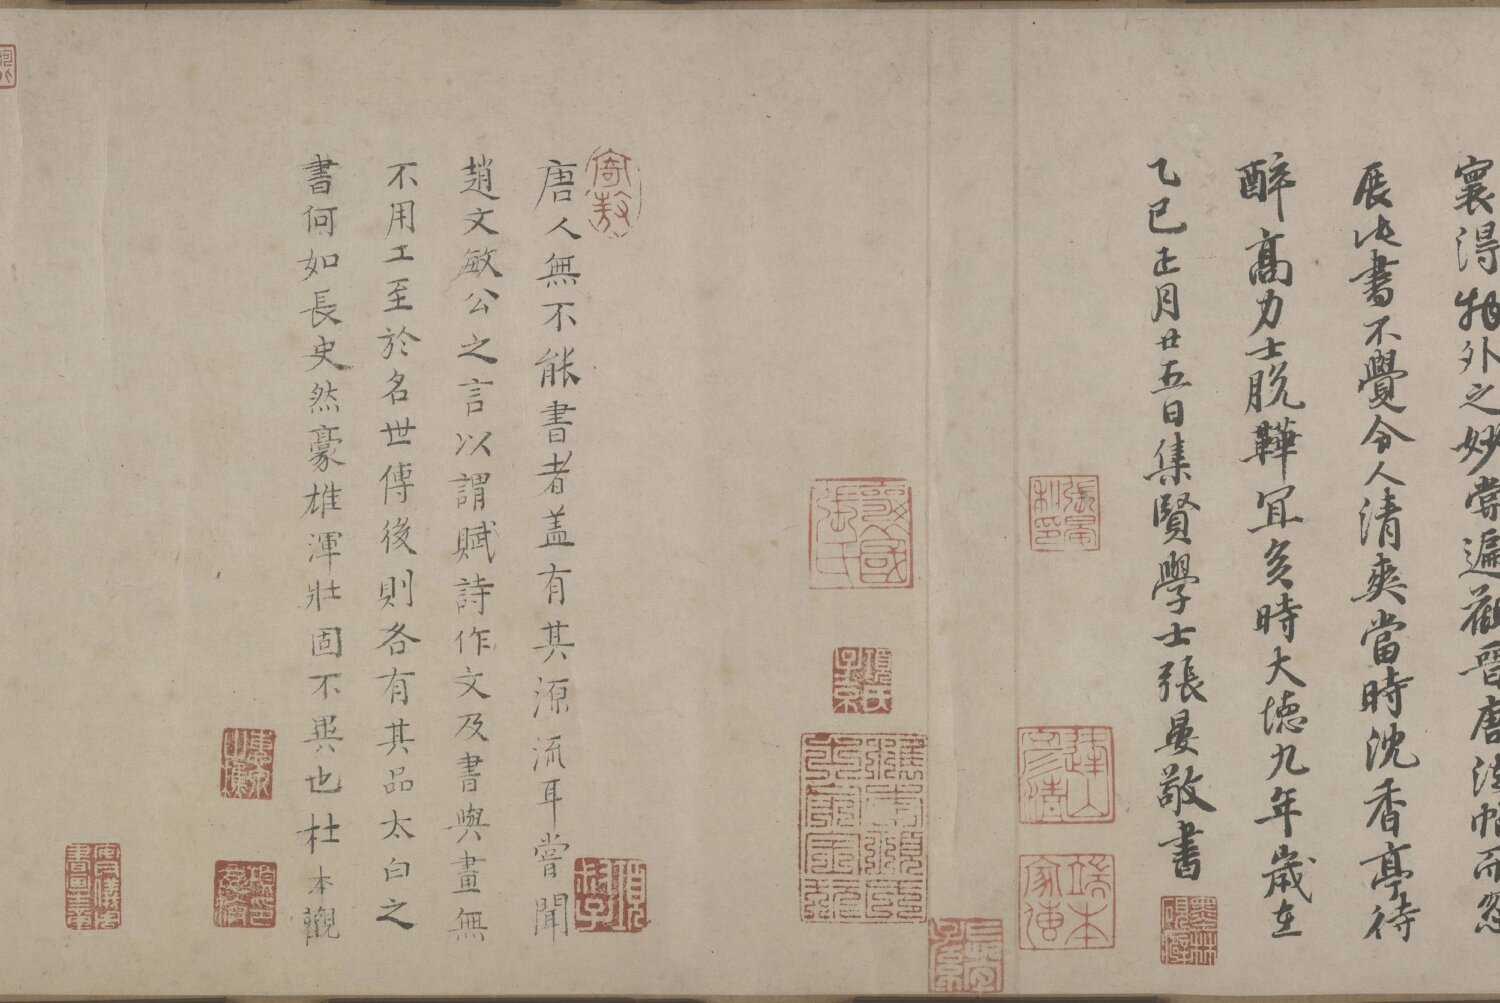 寰得物外之妙嘗遍觀晉唐法帖而忽
展此書不覺令人清爽當時沈香亭待
醉高力士脫鞾宜矣時大德九年歲在
乙巳正月廿五日集賢學士張晏敬書
唐人無不能書者盖有其源流耳嘗聞
趙文敏公之言以謂賦詩作文及書與畫無
不用工至於名世傳後則各有其品太白之
書何如長史然豪雄渾壯固不異也杜本觀